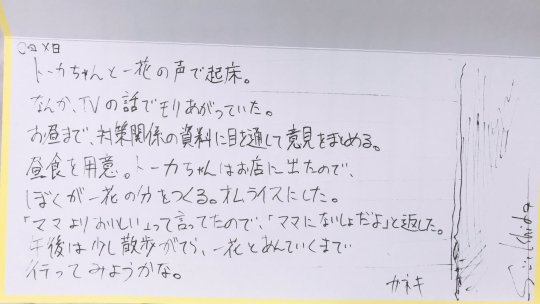 〇月×日
トーカちゃんと一花の声で起床。
なんか、TVの話でもりあがっていた。
お昼まで、対策関係の資料に目を通して意見をまとめる。
昼食を用意。トーカちゃんはお店に出たので、
ぼくが一花の分をつくる。オムライスにした。
「ママよりおいしい」って言ってたので、「ママにないしょだよ」と返した。
午後は少し散歩がてら、一花とあんていくまで
行ってみようかな。
カネキ
Sui Ishida